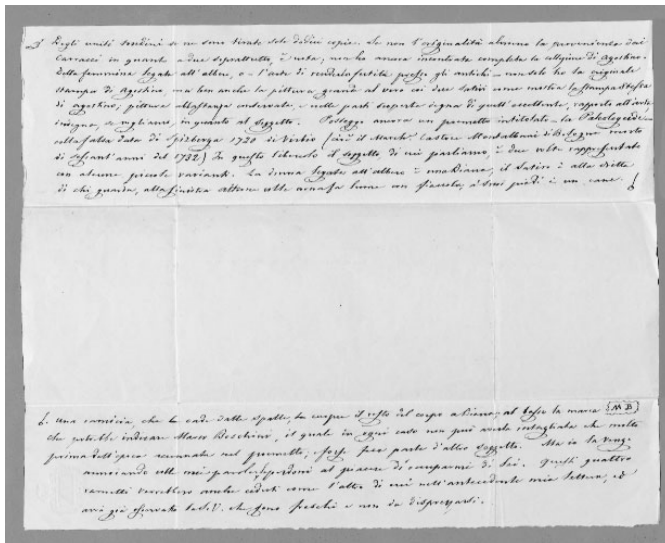 Degli uniti tondini se ne sono tirate sole dodici copie. Se non l'originalità almeno la provenienza dai
Carracci in quanto a due soprattutto, è nota, ma ho ancora incontrata completa la collezione di Agostino.
Della femmina legata all'albero, o - l'arte di renderla fertile presso gli antichi - non solo ho la originale
stampa di Agostino, ma ben anche la pittura grande al vero coi due Satiri come mostra la stampa stessa
di Agostino; pittura conservata, e nelle parti degna di quell'eccellente, rapporto all'arte
in quanto al soggetto. Posseggo ancora un poemetto intitolato - la
colla falsa data di 1720 di Verbio (cioè il March. Castore Montalbani di Bologna morto
di sessant'anni del 1732) In questo libercolo il soggetto di cui parliamo, è due volte rappresentato
con alcune piccole varianti. La donna legata all'albero è una Diana, il Satiro è alla dritta
di chi guarda, alla sinistra colla face un a' suoi piedi è un cane.
una camicia, che le cade dalle spalle, la cuopre il resto del corpo a Diana; al basso la marca M B
che potrebbe indicare Marco Boschini, il quale in ogni caso non può averla intagliata che molto
prima dell'epoca accennata nel poemetto, e forse fece parte d'altro soggetto. Ma io la vengo
annoiando colle mie parole, e perdoni al piacere di occuparmi di Lei. Questi quattro
rametti verrebbero anche ceduti come l'altro di cui nell'antecedente mia lettera, ed
avrà già osservato la S.V. che sono freschi e non da disprezzarsi.